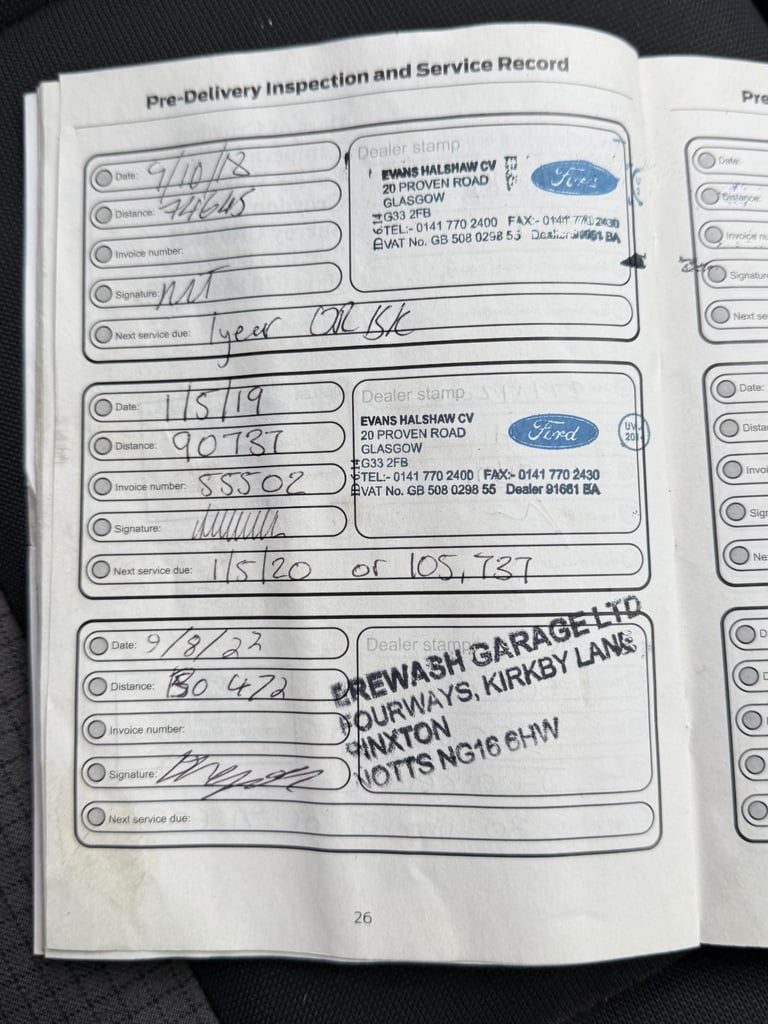 Pre-Delivery Inspection and Service Record
Date: 9/10/18
Distance: 74645
Invoice number:
Signature:
Next service due: 1 year OR 15K
Dealer stamp
EVANS HALSHAW CV
20 PROVEN ROAD
GLASGOW
G33 2FB
TEL:- 0141 770 2400 FAX:- 0141 770 2430
VAT No. GB 508 0298 55 Dealer 91661 BA
Ford
Date: 1/5/19
Distance: 90737
Invoice number: 55502
Signature:
Next service due: 1/5/20 or 105,737
Dealer stamp
EVANS HALSHAW CV
20 PROVEN ROAD
GLASGOW
G33 2FB
TEL:- 0141 770 2400 FAX:- 0141 770 2430
VAT No. GB 508 0298 55 Dealer 91661 BA
Ford
Date: 9/8/22
Distance: 472
Invoice number:
Signature:
Next service due:
Dealer stamp
EREWASH GARAGE LTD
FOURWAYS, KIRKBY LANE
PINXTON
NOTTS NG16 6HW
26
Pre
Date:
Distance:
Invoice nu
Signatur
Next se
Date:
Dista
Invoi
Sign
Ne
D